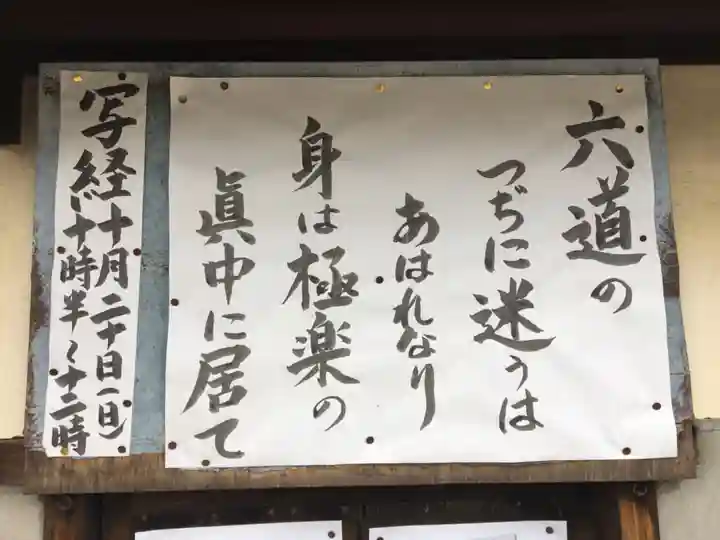 六道の
つぢに迷うは
あはれなり
身は極楽の
眞中に居て
写経十月二十日(日)
十時半〜十二時